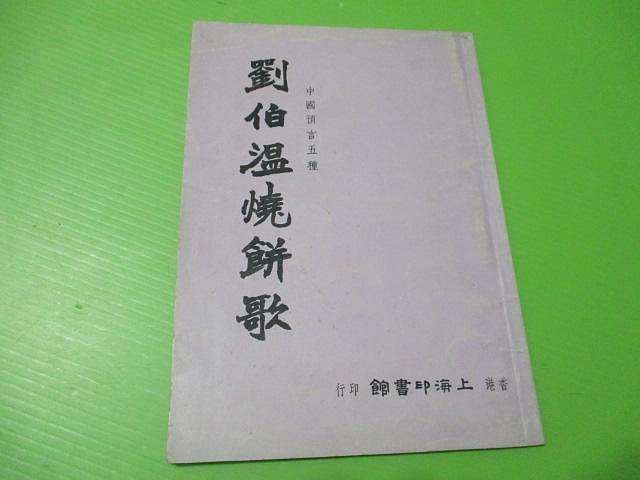 中國預言五種
劉伯溫燒餅歌
香港 上海印書館 印行